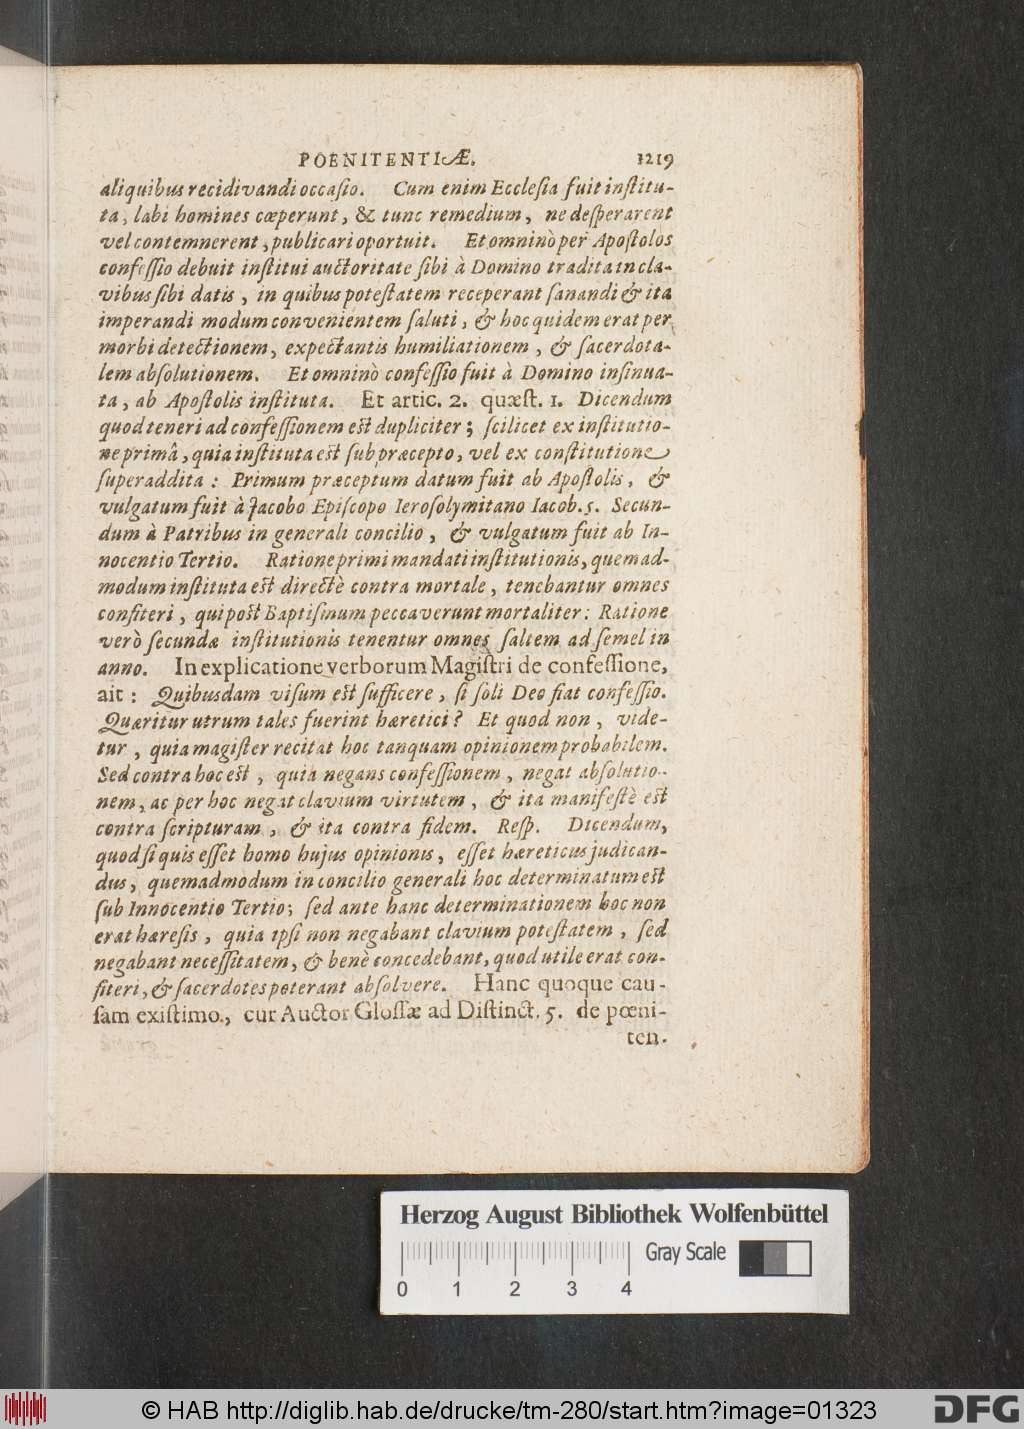 POENITENTIÆ. 1219
aliquibus recidivandi occaſio. Cum enim Eccleſia fuit inſtitu-
ta, labi homines cœperunt, & tunc remedium, ne deſperarent
vel contemnerent, publicari oportuit. Et omninò per Apoſtolos
confeſſio debuit inſtitui auctoritate ſibi à Domino tradita in cla-
vibus ſibi datis, in quibus poteſtatem receperant ſanandi & ita
imperandi modum convenientem ſaluti, & hoc quidem erat per
morbi detectionem, expectantis humiliationem, & ſacerdota-
lem abſolutionem. Et omninò confeſſio fuit à Domino inſinua-
ta, ab Apoſtolis inſtituta. Et artic. 2. quæſt. 1. Dicendum
quod teneri ad confeſſionem eſt dupliciter; ſcilicet ex inſtitutio-
ne primâ, quia inſtituta eſt ſub præcepto, vel ex conſtitutione
ſuperaddita: Primum præceptum datum fuit ab Apoſtolis, &
vulgatum fuit à Jacobo Epiſcopo Ieroſolymitano Iacob. 5. Secun-
dum à Patribus in generali concilio, & vulgatum fuit ab In-
nocentio Tertio. Ratione primi mandati inſtitutionis, quemad-
modum inſtituta eſt directè contra mortale, tenebantur omnes
confiteri, qui poſt Baptiſmum peccaverunt mortaliter: Ratione
verò ſecundæ inſtitutionis tenentur omnes ſaltem ad ſemel in
anno. In explicatione verborum Magiſtri de confeſſione,
ait: Quibusdam viſum eſt ſufficere, ſi ſoli Deo fiat confeſſio.
Quæritur utrum tales fuerint hæretici? Et quod non, vide-
tur, quia magiſter recitat hoc tanquam opinionem probabilem.
Sed contra hoc eſt, quia negans confeſſionem, negat abſolutio-
nem, ac per hoc negat clavium virtutem, & ita manifeſtè eſt
contra ſcripturam, & ita contra fidem. Reſp. Dicendum,
quod ſi quis eſſet homo hujus opinionis, eſſet hæreticus judican-
dus, quemadmodum in concilio generali hoc determinatum eſt
ſub Innocentio Tertio; ſed ante hanc determinationem hoc non
erat hæreſis, quia ipſi non negabant clavium poteſtatem, ſed
negabant neceſſitatem, & benè concedebant, quod utile erat con-
fiteri, & ſacerdotes poterant abſolvere. Hanc quoque cau-
ſam exiſtimo, cur Auctor Gloſſæ ad Diſtinct. 5. de pœni-
ten-
Herzog August Bibliothek Wolfenbüttel
Gray Scale
0 1 2 3 4
© HAB http://diglib.hab.de/drucke/tm-280/start.htm?image=01323
DFG